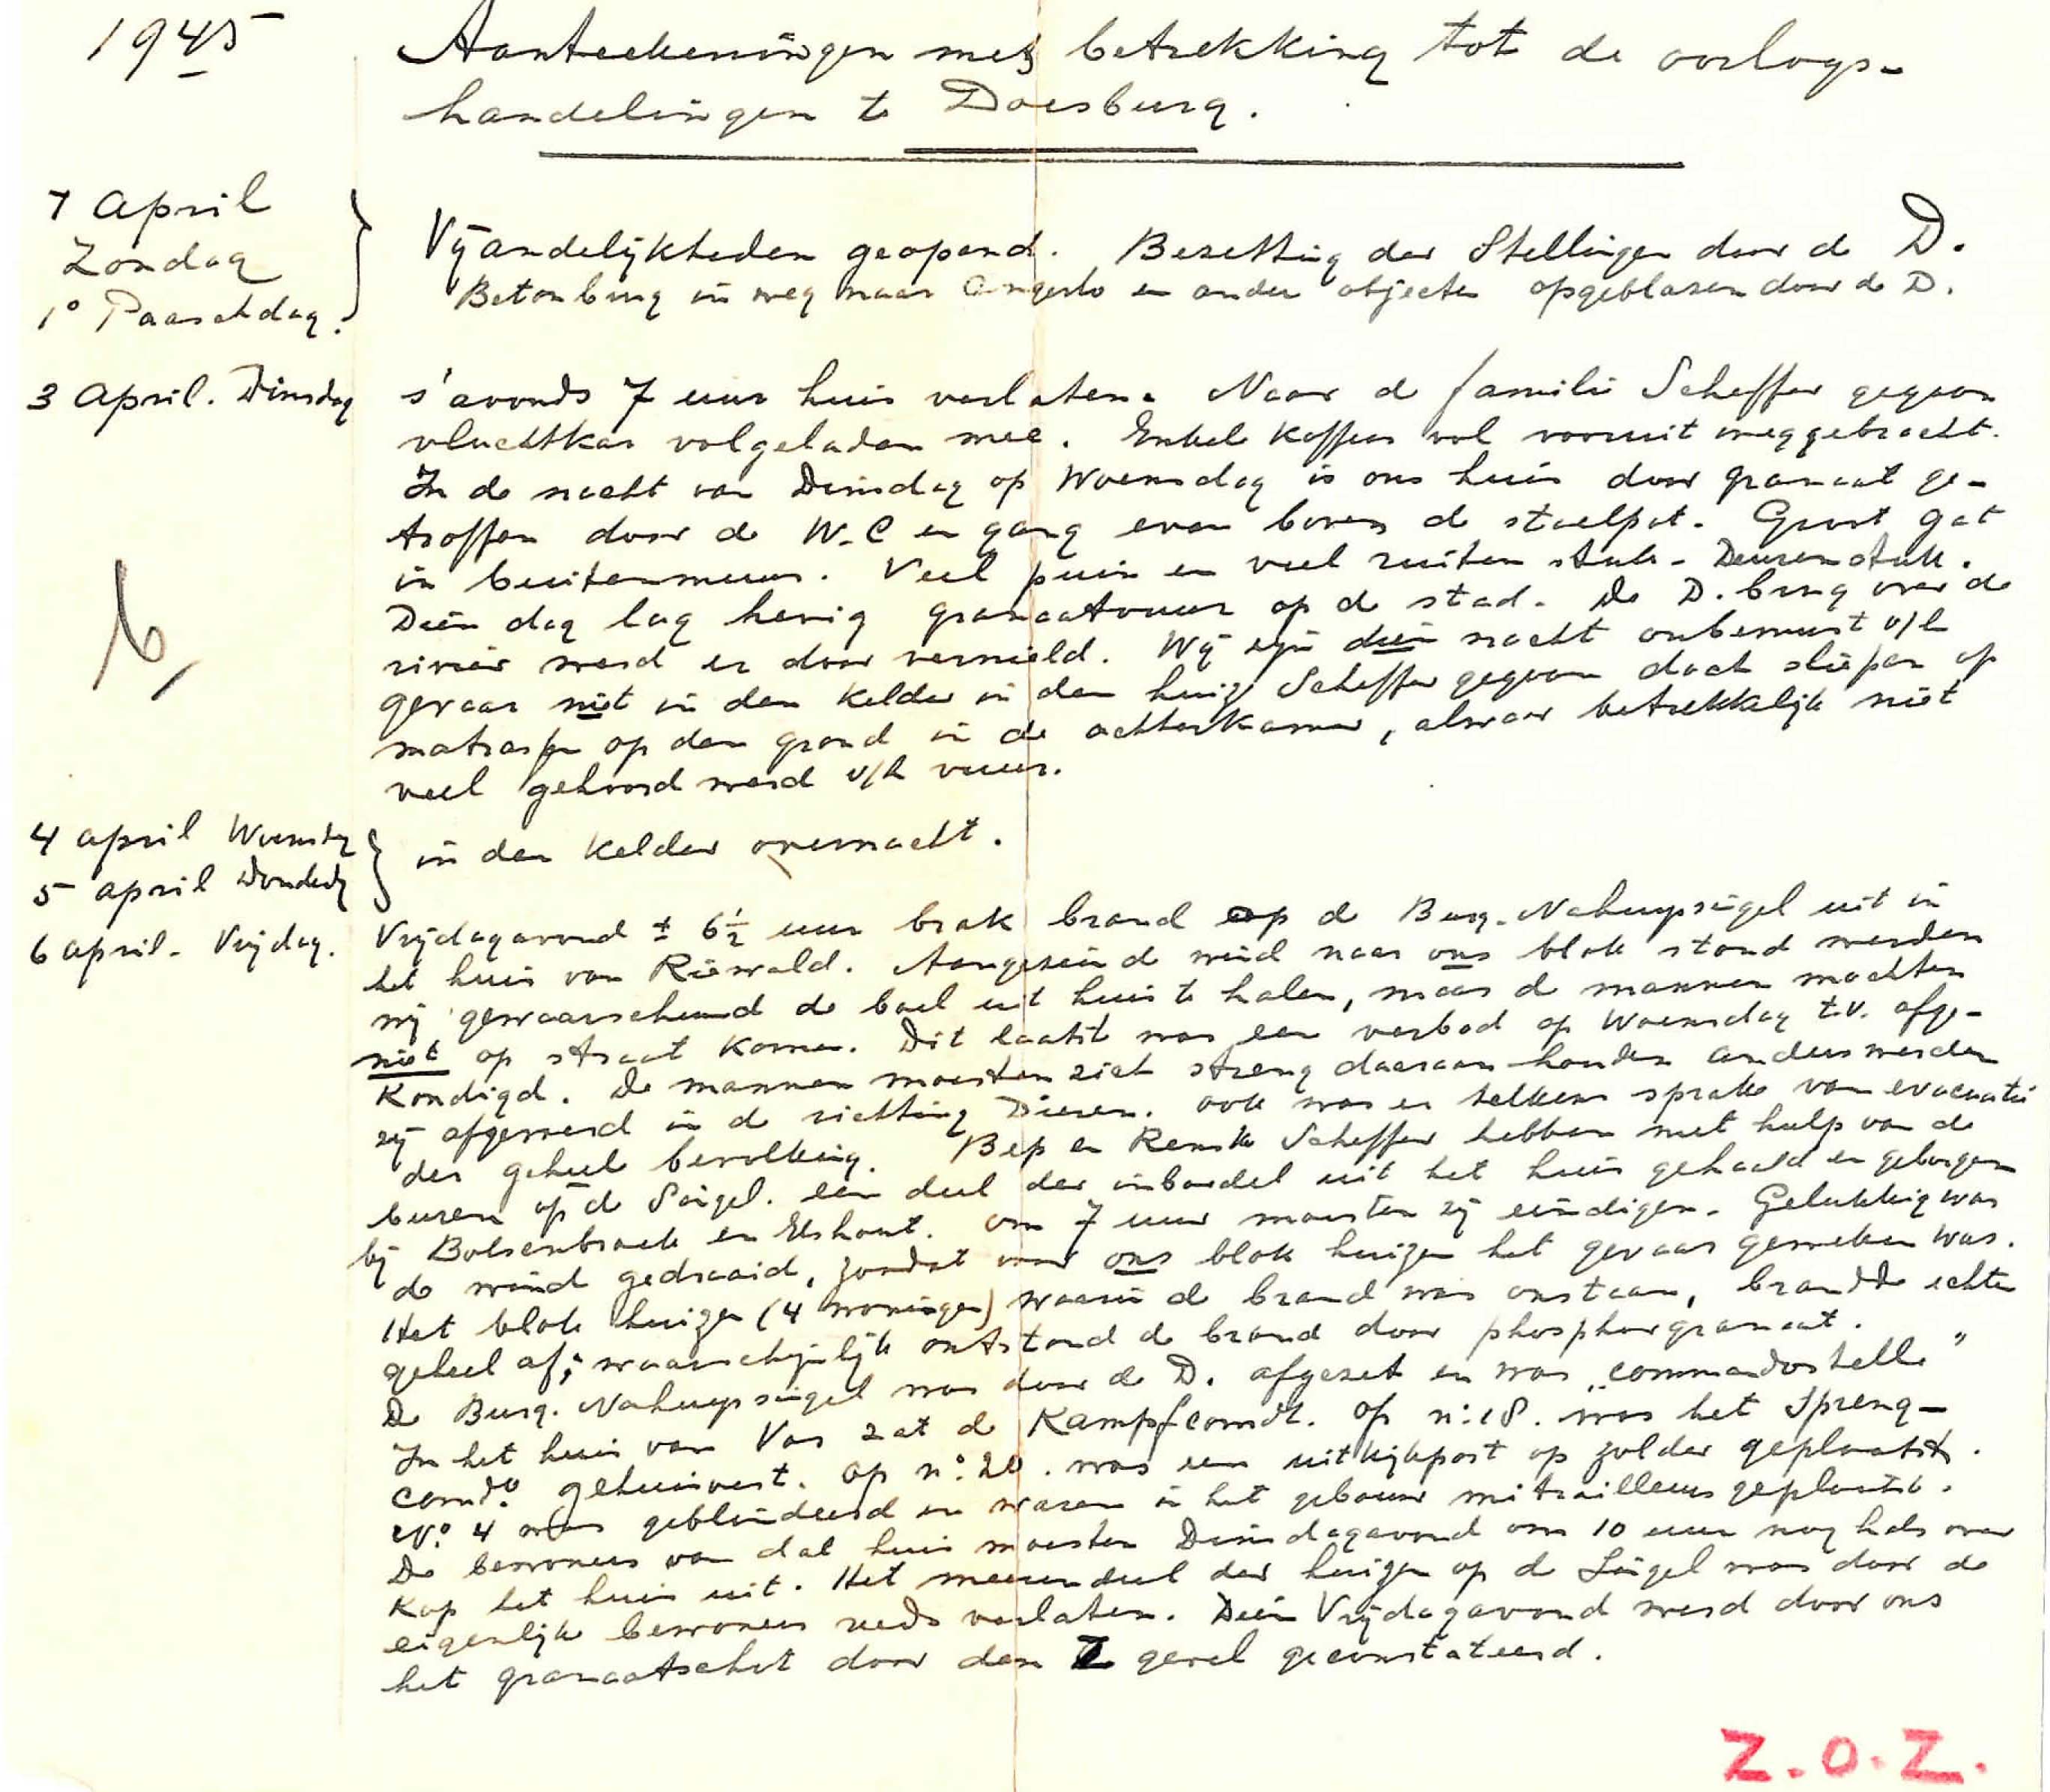 1945
Aanteekeningen met betrekking tot de oorlogs-
handelingen te Doesburg.
1 April
Zondag
1e Paaschdag.
Vijandelijkheden geopend. Bezetting der Stellingen door de D.
Betonbrug in weg naar Angerlo en ander objecten opgeblazen door de D.
3 April. Dinsdag
s'avonds 7 uur huis verlaten. Naar de familie Scheffer gegaan
vluchtkar volgeladen mee. Enkele koffers vol vooruit weggebracht.
In de nacht van Dinsdag op Woensdag is ons huis door granaat ge-
troffen door de W.C en gang even boven de stoelpot. Groot gat
in buitenmuur. Veel puin en veel ruiten stuk. Deuren stuk.
Dien dag lag hevig granaatvuur op de stad. De D. brug over de
rivier werd er door vernield. Wij zijn dien nacht onbewust v/h
gevaar niet in den kelder in den huize Scheffer gegaan doch sliepen op
matrassen op den grond in de achterkamer, alwaar betrekkelijk niet
veel gehoord werd v/h vuur.
b
4 april Woensdag
5 april Donderdag
in den kelder overnacht.
6 april. Vrijdag.
Vrijdagavond ± 6½ uur brak brand op de Burg. Nahuyssingel uit in
het huis van Riewald. Aangezien de wind naar ons blok stond werden
wij gewaarschuwd de boel uit huis te halen, maar de mannen mochten
niet op straat komen. Dit laatste was een verbod op Woensdag t.v. afge-
kondigd. De mannen moesten zich streng daaraan houden anders werden
zij afgevoerd in de richting Dieren. Ook was er telkens sprake van evacuatie
der geheele bevolking. Bep en Renske Scheffer hebben met hulp van de
buren op de Singel. een deel der inboedel uit het huis gehaald en geborgen
bij Bolsenbroek en Elshout. Om 7 uur moesten zij eindigen. Gelukkig was
de wind gedraaid, zoodat voor ons blok huizen het gevaar geweken was.
Het blok huizen (4 woningen) waarin de brand was onstaan, brandde echter
geheel af; waarschijnlijk ontstond de brand door phosphorgranaat.
De Burg. Nahuyssingel was door de D. afgezet en was „commandostelle”
In het huis van Vos zat de Kampfcomdt. Op n: 18. was het Spreng-
comdo gehuisvest. Op n: 20. was een uitkijkpost op zolder geplaatst.
No. 4 was geblindeerd en waren in het gebouw mitrailleurs geplaatst.
De bewoners van dat huis moesten Dinsdagavond om 10 uur nog hals over
kop het huis uit. Het meerendeel der huizen op de Singel was door de
eigenlijke bewoners reeds verlaten. Dien Vrijdagavond werd door ons
het granaatschot door den Z gevel geconstateerd.
Z.O.Z.